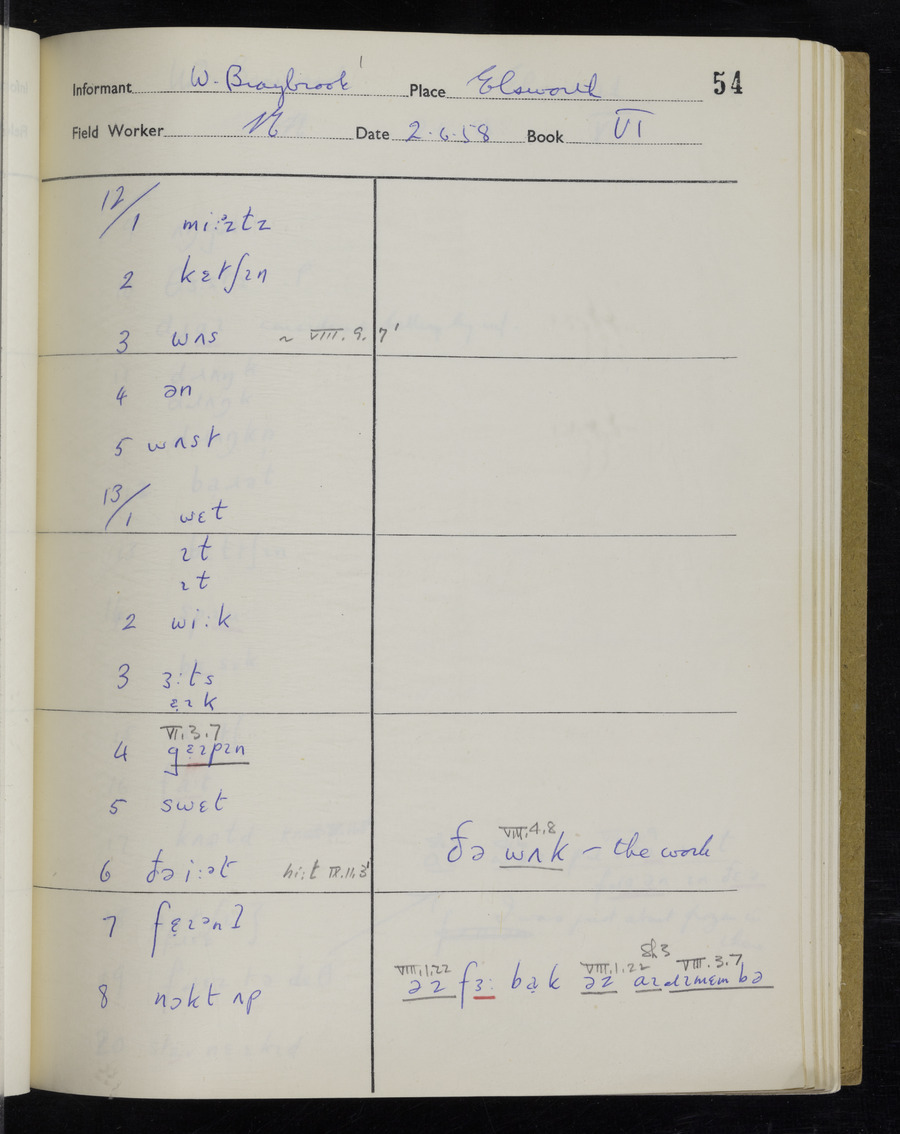 Informant W. Braybrook Place Elsworth 54
Field Worker Date 2.6.58 Book VI
12/1 miːᵊztz
2 kɛtʃɪn
3 wʌs ~ VIII.9.7'
4 ən
5 wʌst
13/1 wɛt
ɪt
ɪt
2 wiːk
3 ɜːts
ɛ̜ɪk
VI.3.7
4 gɛ̜ɪpɪn
5 swɛt
VIII.4.8
ðə wʌk – the work
6 ðə iːət hiːt IX.11.3'
7 fɛ̜ɪənʔ
Sh3
VIII.1.22 VIII.1.22 VIII.3.7
əz fɜː ba̜k əz aɪ dɪmɛmbə
8 nɔkt ʌp